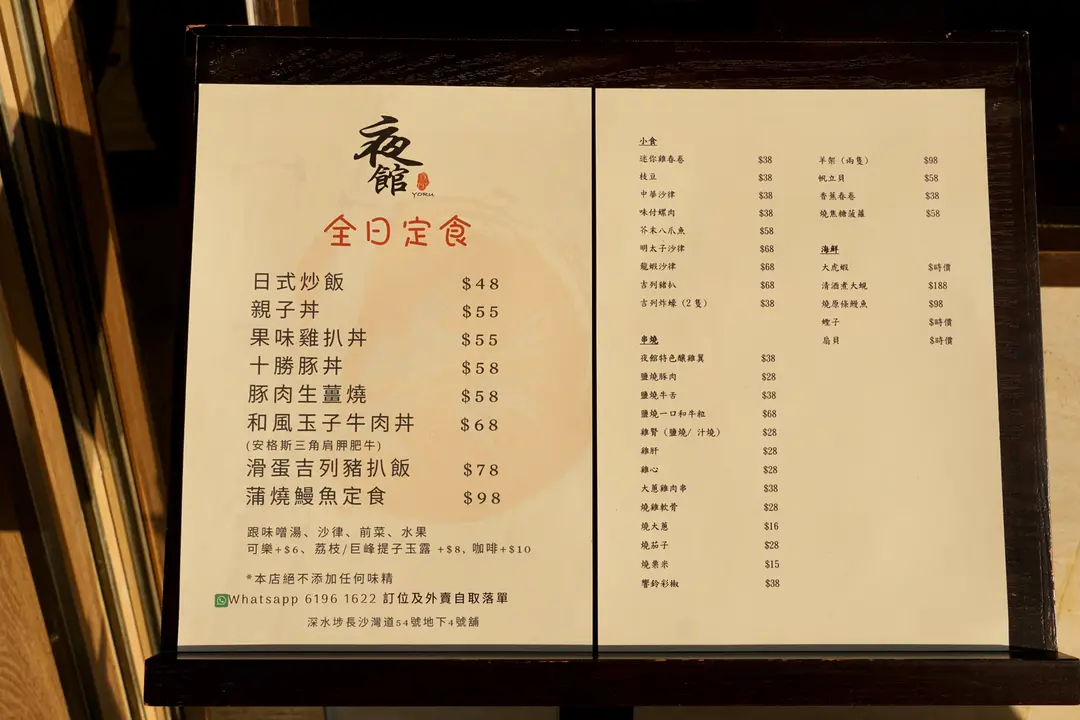 夜館
YORU
全日定食
日式炒飯 $48
親子丼 $55
果味雞扒丼 $55
十勝豚丼 $58
豚肉生薑燒 $58
和風玉子牛肉丼 $68
(安格斯三角肩胛肥牛)
滑蛋吉列豬扒飯 $78
蒲燒鰻魚定食 $98
跟味噌湯、沙律、前菜、水果
可樂+$6、荔枝/巨峰提子玉露 +$8, 咖啡+$10
*本店絕不添加任何味精
Whatsapp 6196 1622 訂位及外賣自取落單
深水埗長沙灣道54號地下4號舖
小食
迷你雞春卷 $38
枝豆 $38
中華沙律 $38
味付螺肉 $38
芥末八爪魚 $58
明太子沙律 $68
龍蝦沙律 $68
吉列豬扒 $68
吉列炸蠔 (2隻) $38
串燒
夜館特色釀雞翼 $38
鹽燒豚肉 $28
鹽燒牛舌 $38
鹽燒一口和牛粒 $68
雞腎 (鹽燒/ 汁燒) $28
雞肝 $28
雞心 $28
大蔥雞肉串 $38
燒雞軟骨 $28
燒大蔥 $16
燒茄子 $28
燒粟米 $15
響鈴彩椒 $38
羊架 (兩隻) $98
帆立貝 $58
香蕉春卷 $38
燒焦糖菠蘿 $58
海鮮
大虎蝦 $時價
清酒煮大蜆 $188
燒原條鰻魚 $98
蟶子 $時價
扇貝 $時價